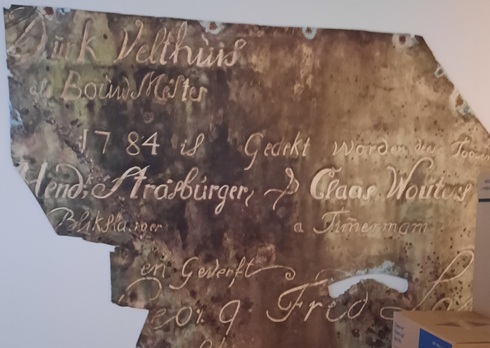 Dirk Velthuis
als Bouw Mester
1784 is Gedekt worden den Toorn
Hend: Strasburger, & Claas Wouters
Blikslager a Timerman
en Geverft
Georg Fred